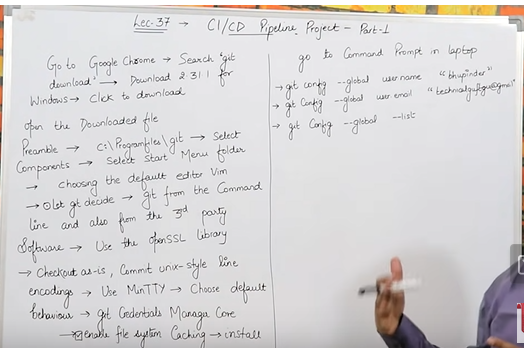 Lec-37 → CI/CD Pipeline Project - Part-1
Go to Google Chrome → Search "git
download" → Download 2.31.1 for
Windows → Click to download
Open the Downloaded file
Preamble → C:\Programfiles\git → Select
Components → Select Start Menu folder
→ choosing the default editor Vim
→ Let git decide → git from the Command
line and also from the 3rd party
Software → Use the openSSL library
→ Checkout as-is, Commit unix-style line
encodings → Use MinTTY → Choose default
behaviour → git Credentials Manager Core
→ enable file system Caching → install
go to Command Prompt in laptop
→ git config --global user.name "bhupinder"
→ git Config --global user.email
→ git Config --global --list